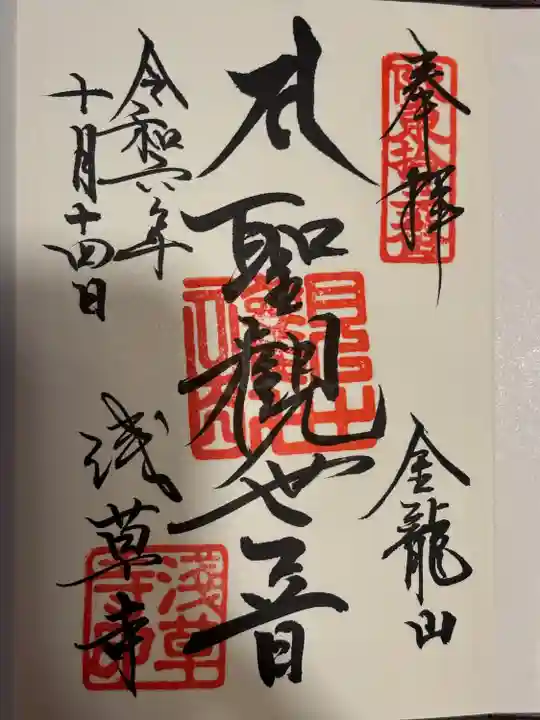 奉拝
金龍山
聖観世音
令和六年
十月十四日
浅草寺
浅草寺印